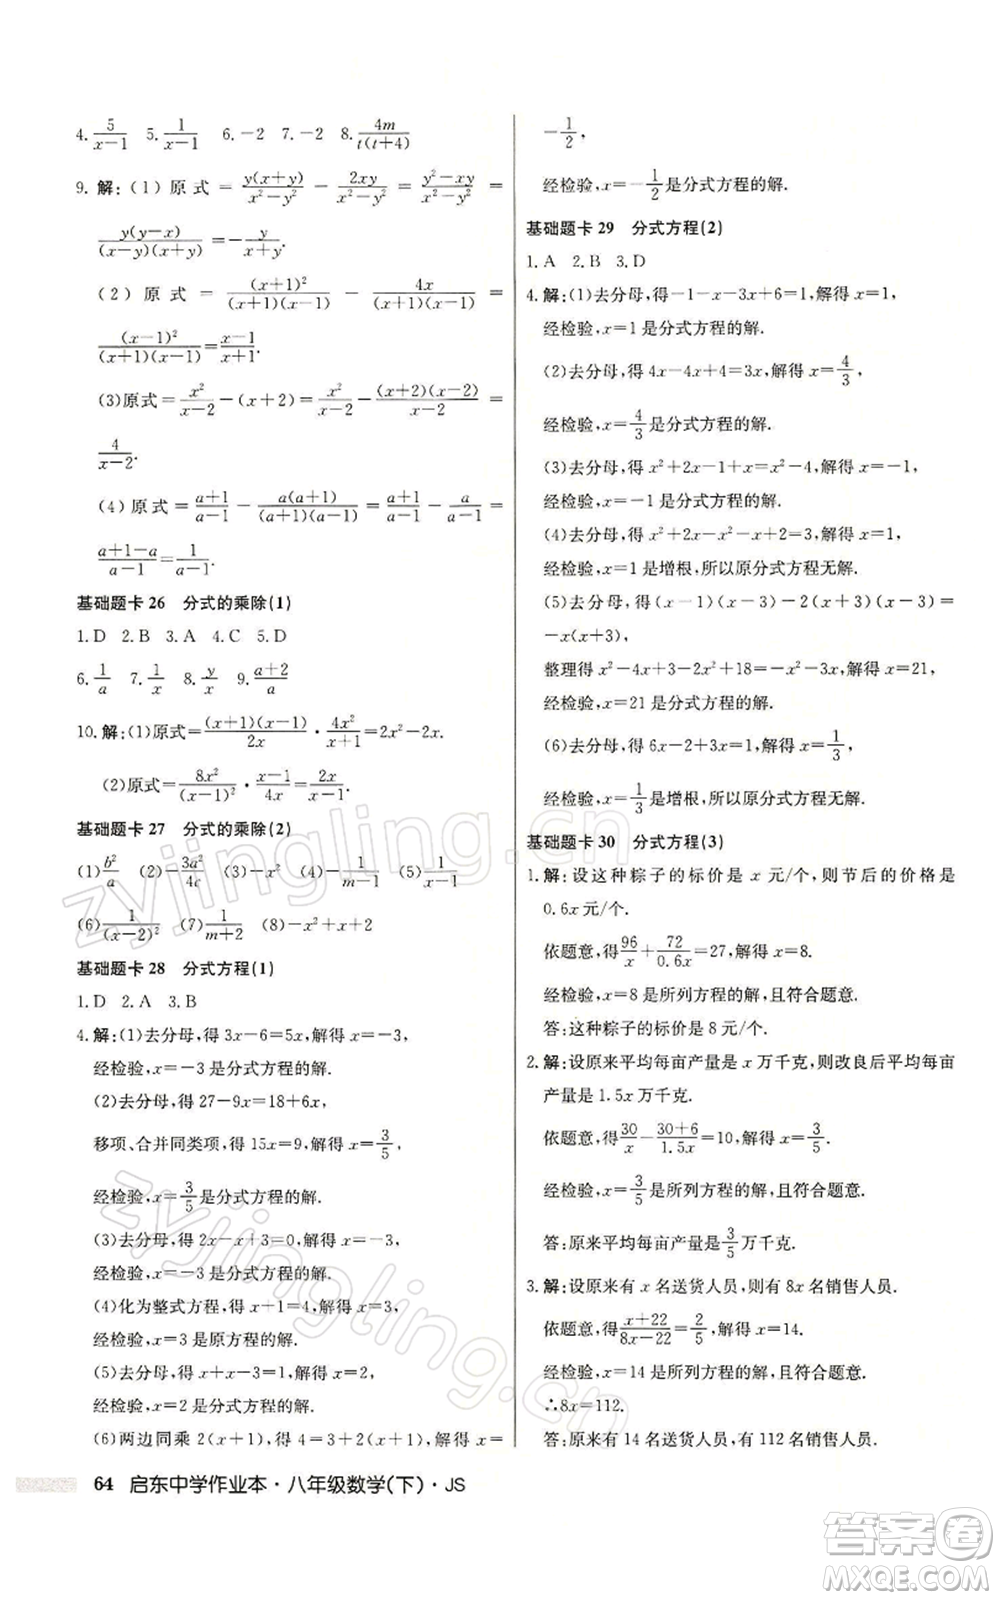 4. 5/(x−1)  5. 1/(x−1)  6.−2  7.−2  8. 4m/(t(t+4))
9. 解:(1)原式 = y(x+y)/(x²−y²) − 2xy/(x²−y²) = (y²−xy)/(x²−y²) =
y(y−x)/((x−y)(x+y)) = −y/(x+y).
(2)原式 = (x+1)²/((x+1)(x−1)) − 4x/((x+1)(x−1)) =
(x−1)²/((x+1)(x−1)) = (x−1)/(x+1).
(3)原式 = x²/(x−2) −(x+2)= x²/(x−2) − (x+2)(x−2)/(x−2) =
4/(x−2).
(4)原式 = (a+1)/(a−1) − a(a+1)/((a+1)(a−1)) = (a+1)/(a−1) − a/(a−1) =
(a+1−a)/(a−1) = 1/(a−1).
基础题卡 26 分式的乘除(1)
1. D  2. B  3. A  4. C  5. D
6. 1/a  7. 1/x  8. y/x  9. (a+2)/a
10. 解:(1)原式= (x+1)(x−1)/2x · 4x²/(x+1) =2x²−2x.
(2)原式= 8x²/(x−1)² · (x−1)/4x = 2x/(x−1).
基础题卡 27 分式的乘除(2)
(1) b²/a  (2)−3a²/4c  (3)−x  (4)−1/(m−1)  (5)
(6) 1/(x−2)²  (7) 1/(m+2)  (8)−x²+x
基础题卡 28 分式方程(1)
1. D  2. A  3. B
4. 解:(1)去分母,得 3x−6=5x,解得 x=−3,
经检验,x=−3 是分式方程的解.
(2)去分母,得 27−9x=18+6x,
移项、合并同类项,得 15x=9,解得 x=3/5,
经检验,x=3/5是分式方程的解.
(3)去分母,得 2x−x+3=0,解得 x=−3,
经检验,x=−3 是分式方程的解.
(4)化为整式方程,得 x+1=4,解得 x=3,
经检验,x=3 是原方程的解.
(5)去分母,得 x+x−3=1,解得 x=2,
经检验,x=2 是分式方程的解.
(6)两边同乘 2(x+1),得 3=2x+2+2,解得 x=
−1/2,
经检验,x=−1/2是分式方程的解.
基础题卡 29 分式方程(2)
1. A  2. B  3. D
4. 解:(1)去分母,得−1−x−3x+6=1,解得 x=1,
经检验,x=1 是分式方程的解.
(2)去分母,得 4x−4x+4=3x,解得 x=4/3,
经检验,x=4/3是分式方程的解.
(3)去分母,得 x²+2x−1+x=x²−4,解得 x=−1,
经检验,x=−1 是分式方程的解.
(4)去分母,得 x²+2x−x²−x+2=3,解得 x=1,
经检验,x=1 是增根,所以原分式方程无解.
(5)去分母,得(x−1)(x−3)−2(x+3)(x−3)=
−x(x+3),
整理得 x²−4x+3−2x²+18=−x²−3x,解得 x=21,
经检验,x=21 是分式方程的解.
(6)去分母,得 6x−2+3x=1,解得 x=1/3,
经检验,x=1/3是增根,所以原分式方程无解.
基础题卡 30 分式方程(3)
1. 解:设这种粽子的标价是 x 元/个,则节后的价格是
0.6x 元/个.
依题意,得 96/x + 72/0.6x =27,解得 x=8.
经检验,x=8 是所列方程的解,且符合题意.
答:这种粽子的标价是 8 元/个.
2. 解:设原来平均每亩产量是 x 万千克,则改良后平均每亩
产量是 1.5x 万千克.
依题意,得 30/x − (30+6)/1.5x =10,解得 x=3/5.
经检验,x=3/5是所列方程的解,且符合题意.
答:原来平均每亩产量是3/5万千克.
3. 解:设原来有 x 名送货人员,则有 8x 名销售人员.
依题意,得 (x+22)/(8x−22) = 2/5,解得 x=14.
经检验,x=14 是所列方程的解,且符合题意.
∴8x=112.
答:原来有 14 名送货人员,有 112 名销售人员.
64 启东中学作业本·八年级数学(下)·JS
zyjingling.cn
zyjingling.cn
答案圈
MXQE.COM